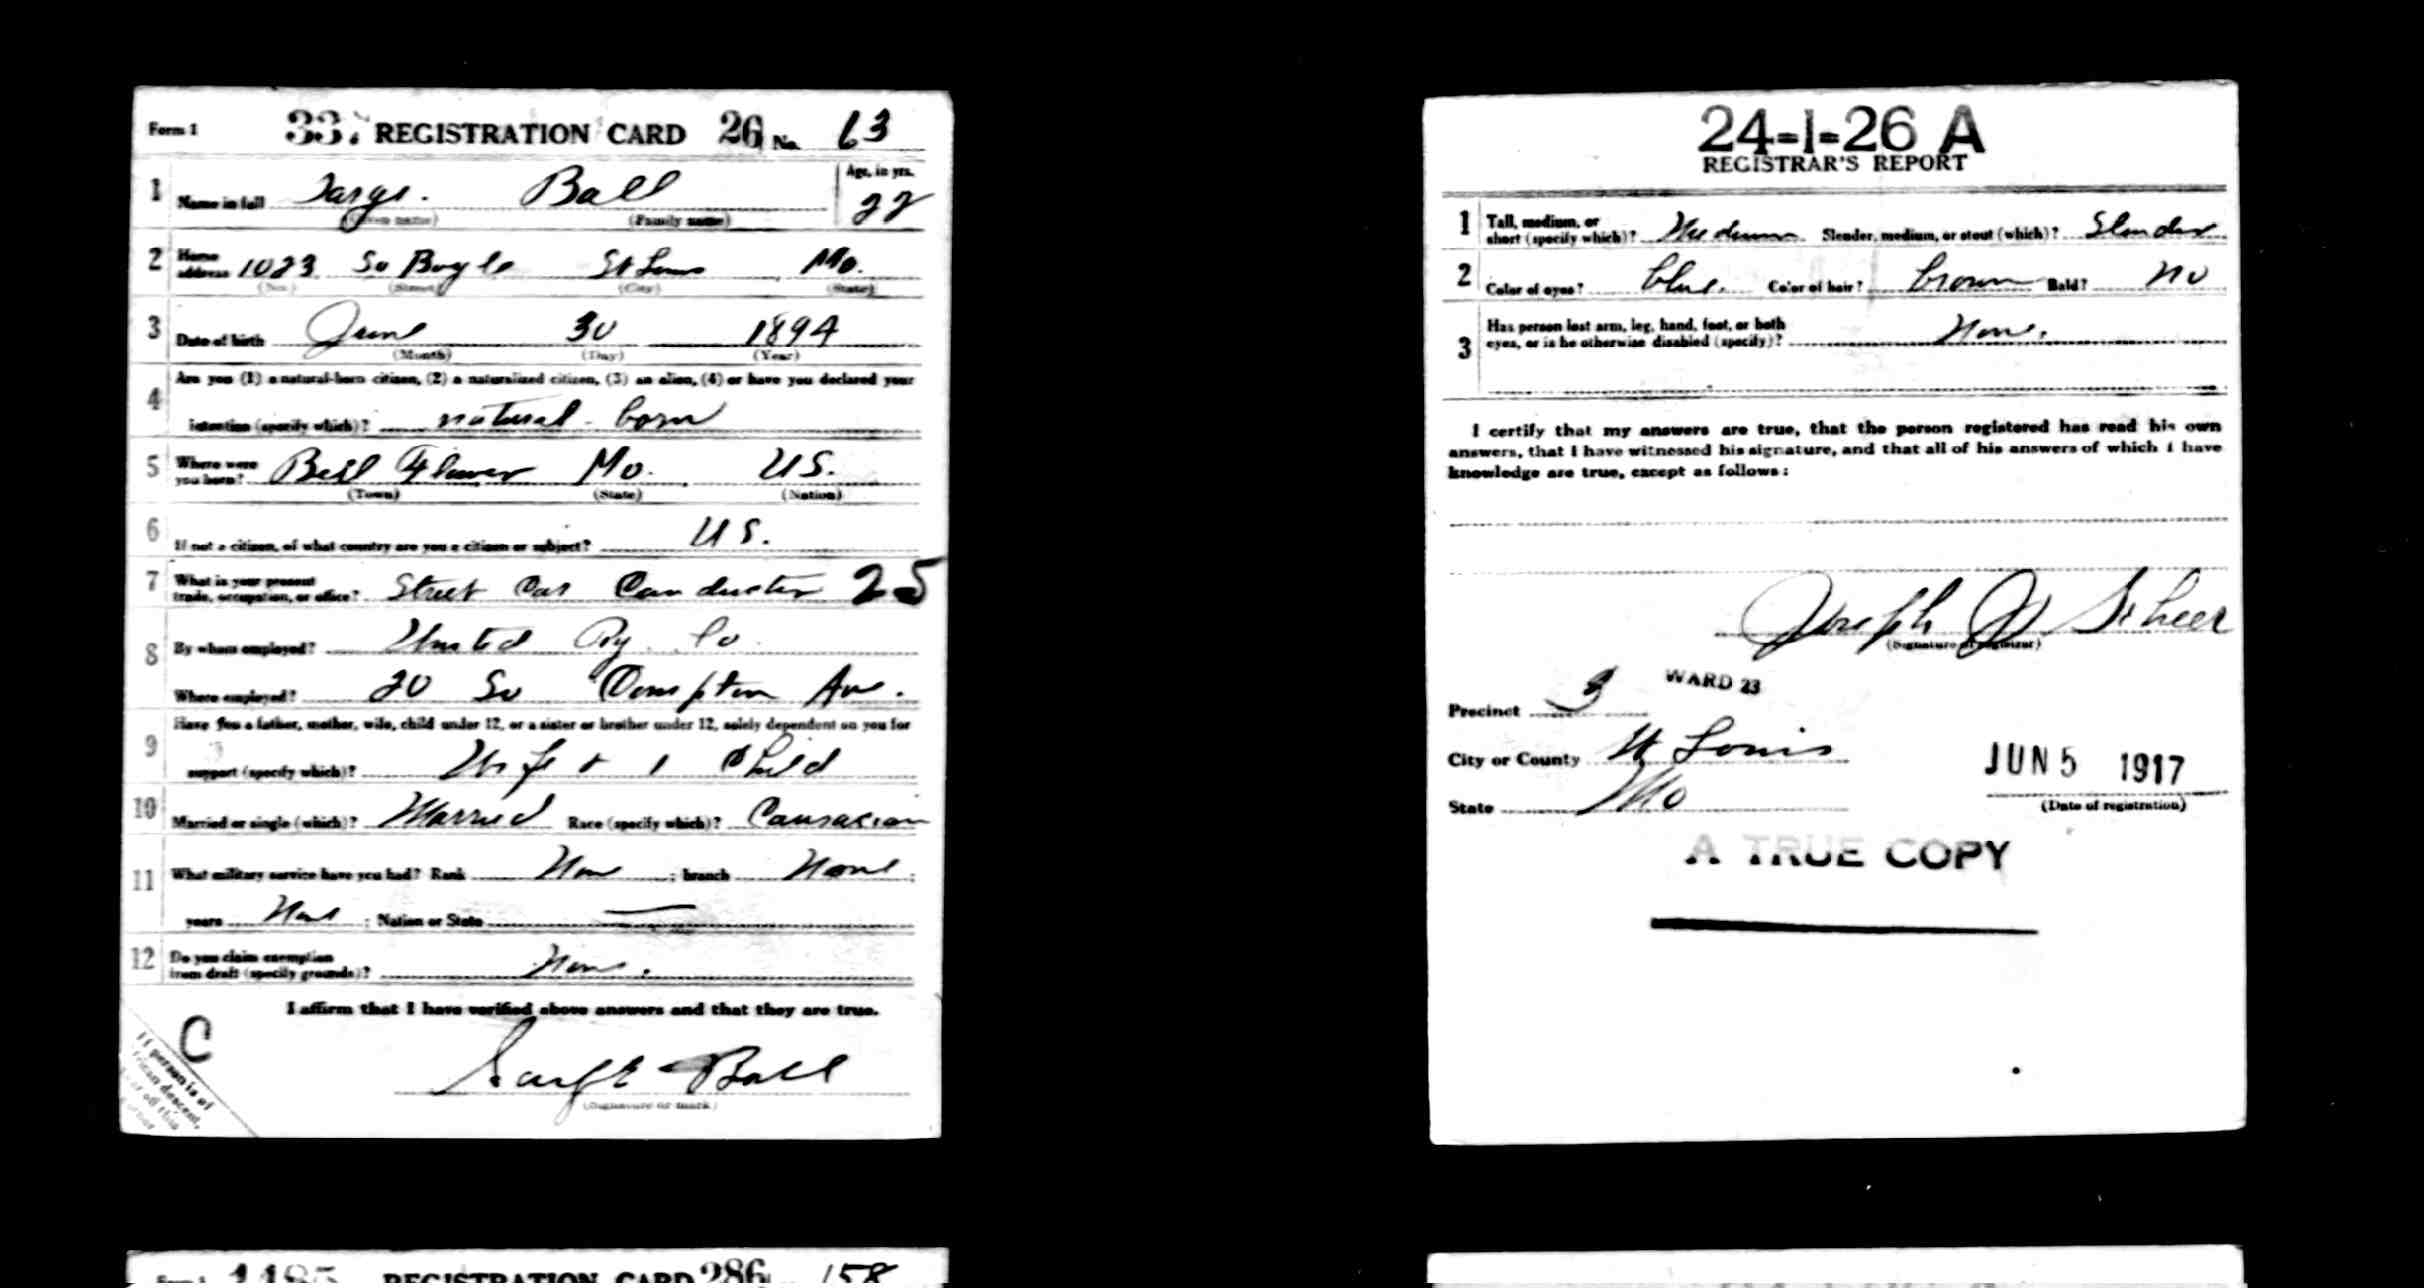 Form 1 337 REGISTRATION CARD 26 No. 63
1 Name in full Targe. Ball Age, in yrs. 22
(Given name) (Family name)
2 Home address 1023 So Boyle St Louis Mo.
(No.) (Street) (City) (State)
3 Date of birth June 30 1894
(Month) (Day) (Year)
4 Are you (1) a natural-born citizen, (2) a naturalized citizen, (3) an alien, (4) or have you declared your
intention (specify which)? natural-born
5 Where were you born? Bell Flower Mo. U S.
(Town) (State) (Nation)
6 If not a citizen, of what country are you a citizen or subject? U S.
7 What is your present trade, occupation, or office? Street Car Conductor 25
8 By whom employed? United Ry. Co.
Where employed? 20 So Compton Ave.
9 Have you a father, mother, wife, child under 12, or a sister or brother under 12, solely dependent on you for
support (specify which)? Wife + 1 Child
10 Married or single (which)? Married Race (specify which)? Causacian
11 What military service have you had? Rank None ; branch None ;
years None ; Nation or State —
12 Do you claim exemption
from draft (specify grounds)? None.
I affirm that I have verified above answers and that they are true.
C
Sarge Ball
(Signature or mark)
If person is of
African descent,
off this
24-1-26 A
REGISTRAR'S REPORT
1 Tall, medium, or
short (specify which)? Medium Slender, medium, or stout (which)? Slender
2 Color of eyes? blue. Color of hair? brown Bald? no
3 Has person lost arm, leg, hand, foot, or both
eyes, or is he otherwise disabled (specify)? None.
I certify that my answers are true, that the person registered has read his own
answers, that I have witnessed his signature, and that all of his answers of which I have
knowledge are true, except as follows:
Joseph J Scheer
(Signature of registrar)
Precinct 3 WARD 23
City or County St Louis
State Mo
JUN 5 1917
(Date of registration)
A TRUE COPY
Form 1 1485 REGISTRATION CARD 286 158